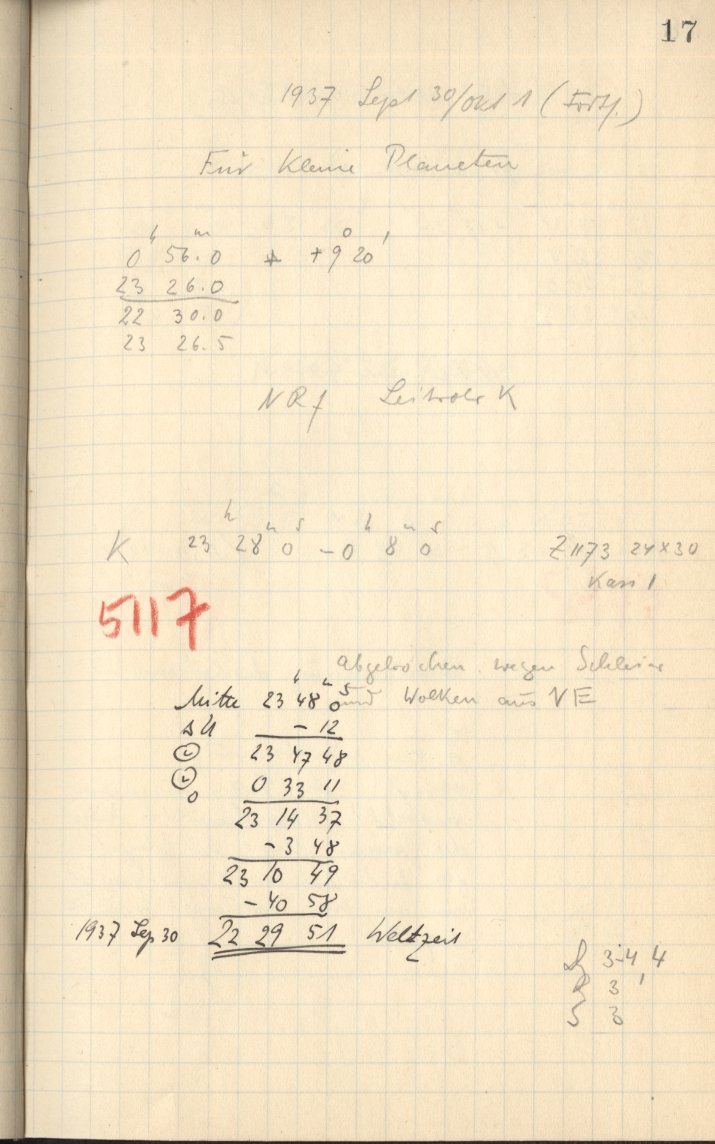 17
1937 Sept 30/Okt 1 (Forts.)
Für Kleine Planeten
h m o '
0 56.0 + +9 20
23 26.0
22 30.0
23 26.5
NRf Leitrohr K
h m s h m s
K 23 28 0 – 0 8 0 Z 1173 24×30
Kass 1
5117
abgebrochen wegen Schleier
und Wolken aus VE
h m s
Mitte 23 48 0
ΔU – 12
23 47 48
0 33 11
23 14 37
– 3 48
23 10 49
– 40 58
1937 Sep 30 22 29 51 Weltzeit
3-4, 4
3
S 3